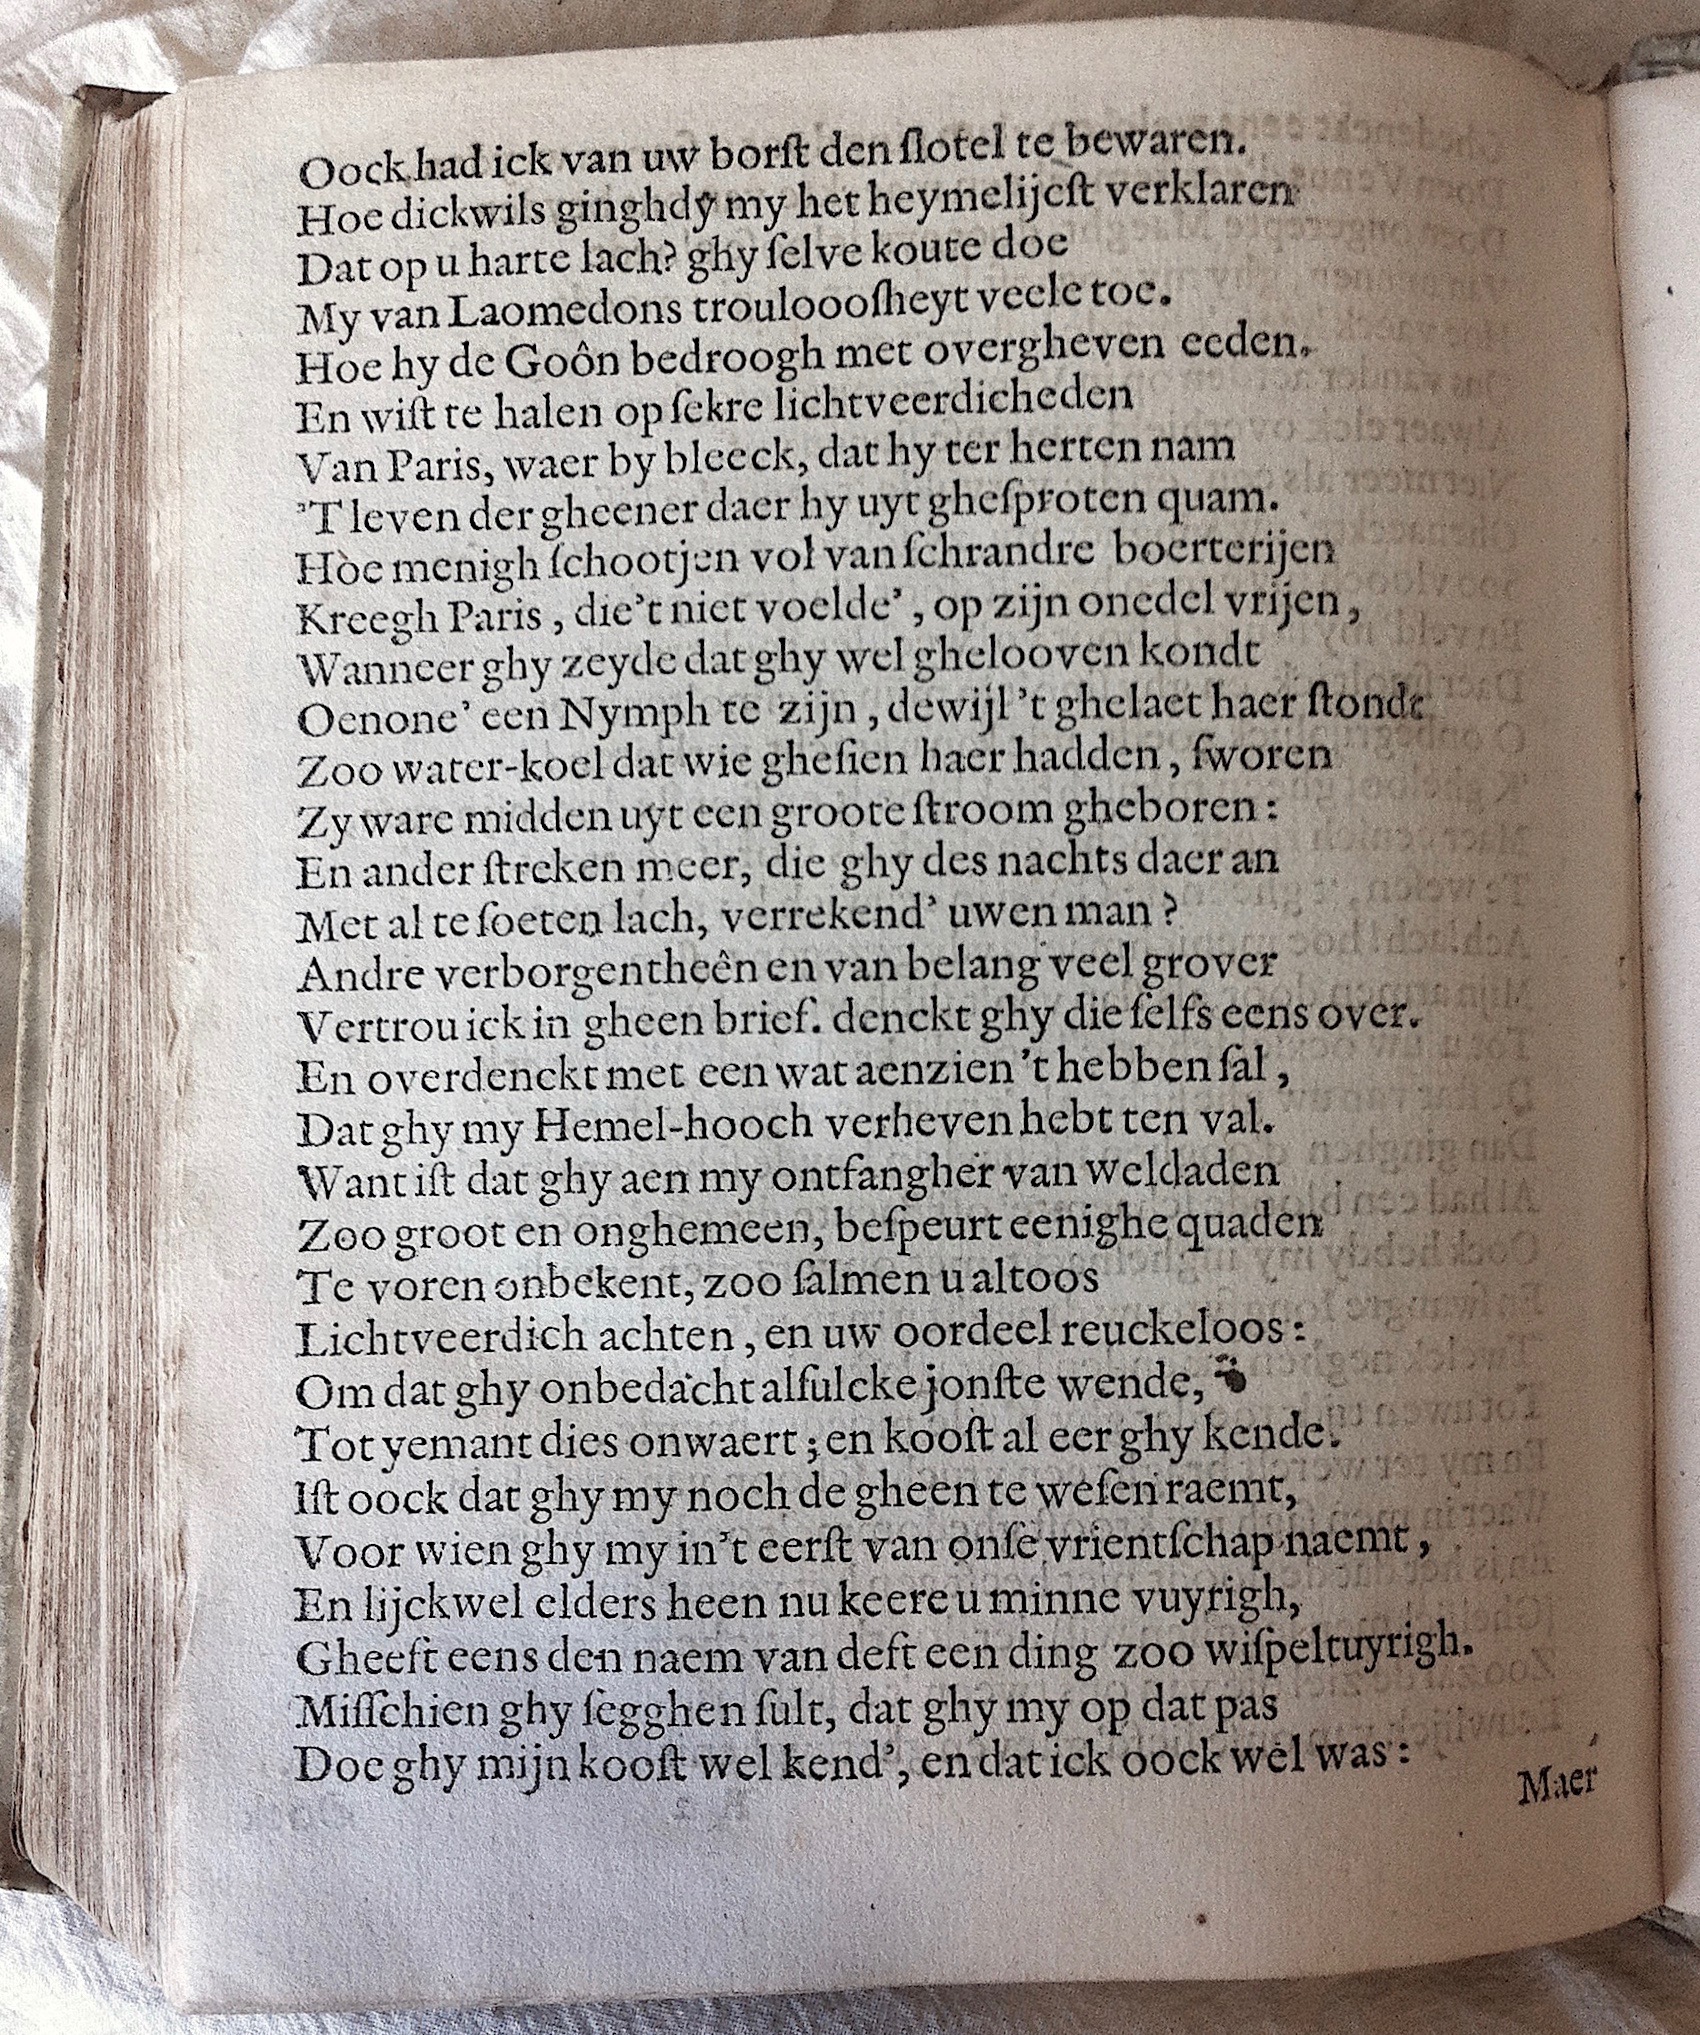 Oock had ick van uw borſt den ſlotel te bewaren.
Hoe dickwils ginghdŷ my het heymelijcſt verklaren
Dat op u harte lach? ghy ſelve koute doe
My van Laomedons troulooosheyt veele toe.
Hoe hy de Goôn bedroogh met overgheven eeden.
En wiſt te halen op ſekre lichtveerdicheden
Van Paris, waer by bleeck, dat hy ter herten nam
'T leven der gheener daer hy uyt gheſproten quam.
Hoe menigh ſchootjen vol van ſchrandre boerterijen
Kreegh Paris, die't niet voelde', op zijn onedel vrijen,
Wanneer ghy zeyde dat ghy wel ghelooven kondt
Oenone' een Nymph te zijn, dewijl 't ghelaet haer ſtondt
Zoo water-koel dat wie gheſien haer hadden, ſworen
Zy ware midden uyt een groote ſtroom gheboren:
En ander ſtreken meer, die ghy des nachts daer an
Met al te ſoeten lach, verrekend' uwen man?
Andre verborgentheên en van belang veel grover
Vertrou ick in gheen brief. denckt ghy die ſelfs eens over.
En overdenckt met een wat aenzien 't hebben ſal,
Dat ghy my Hemel-hooch verheven hebt ten val.
Want iſt dat ghy aen my ontfangher van weldaden
Zoo groot en onghemeen, beſpeurt eenighe quaden
Te voren onbekent, zoo ſalmen u altoos
Lichtveerdich achten, en uw oordeel reuckeloos:
Om dat ghy onbedacht alſulcke jonſte wende,
Tot yemant dies onwaert; en kooſt al eer ghy kende.
Iſt oock dat ghy my noch de gheen te weſen raemt,
Voor wien ghy my in't eerſt van onſe vrientſchap naemt,
En lijckwel elders heen nu keere u minne vuyrigh,
Gheeft eens den naem van deft een ding zoo wiſpeltuyrigh.
Miſſchien ghy ſegghen ſult, dat ghy my op dat pas
Doe ghy mijn kooſt wel kend', en dat ick oock wel was:
Maer